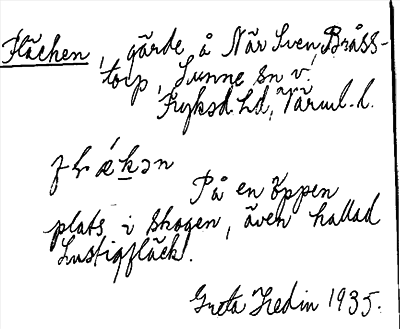 Fläcken, gärde å När Sven, Bråss-
torp, Sunne sn v.
Fryksd. hd, Värml. l.
På en öppen
plats i skogen, även kallad
Lustigfläck.
Greta Hedin 1935.